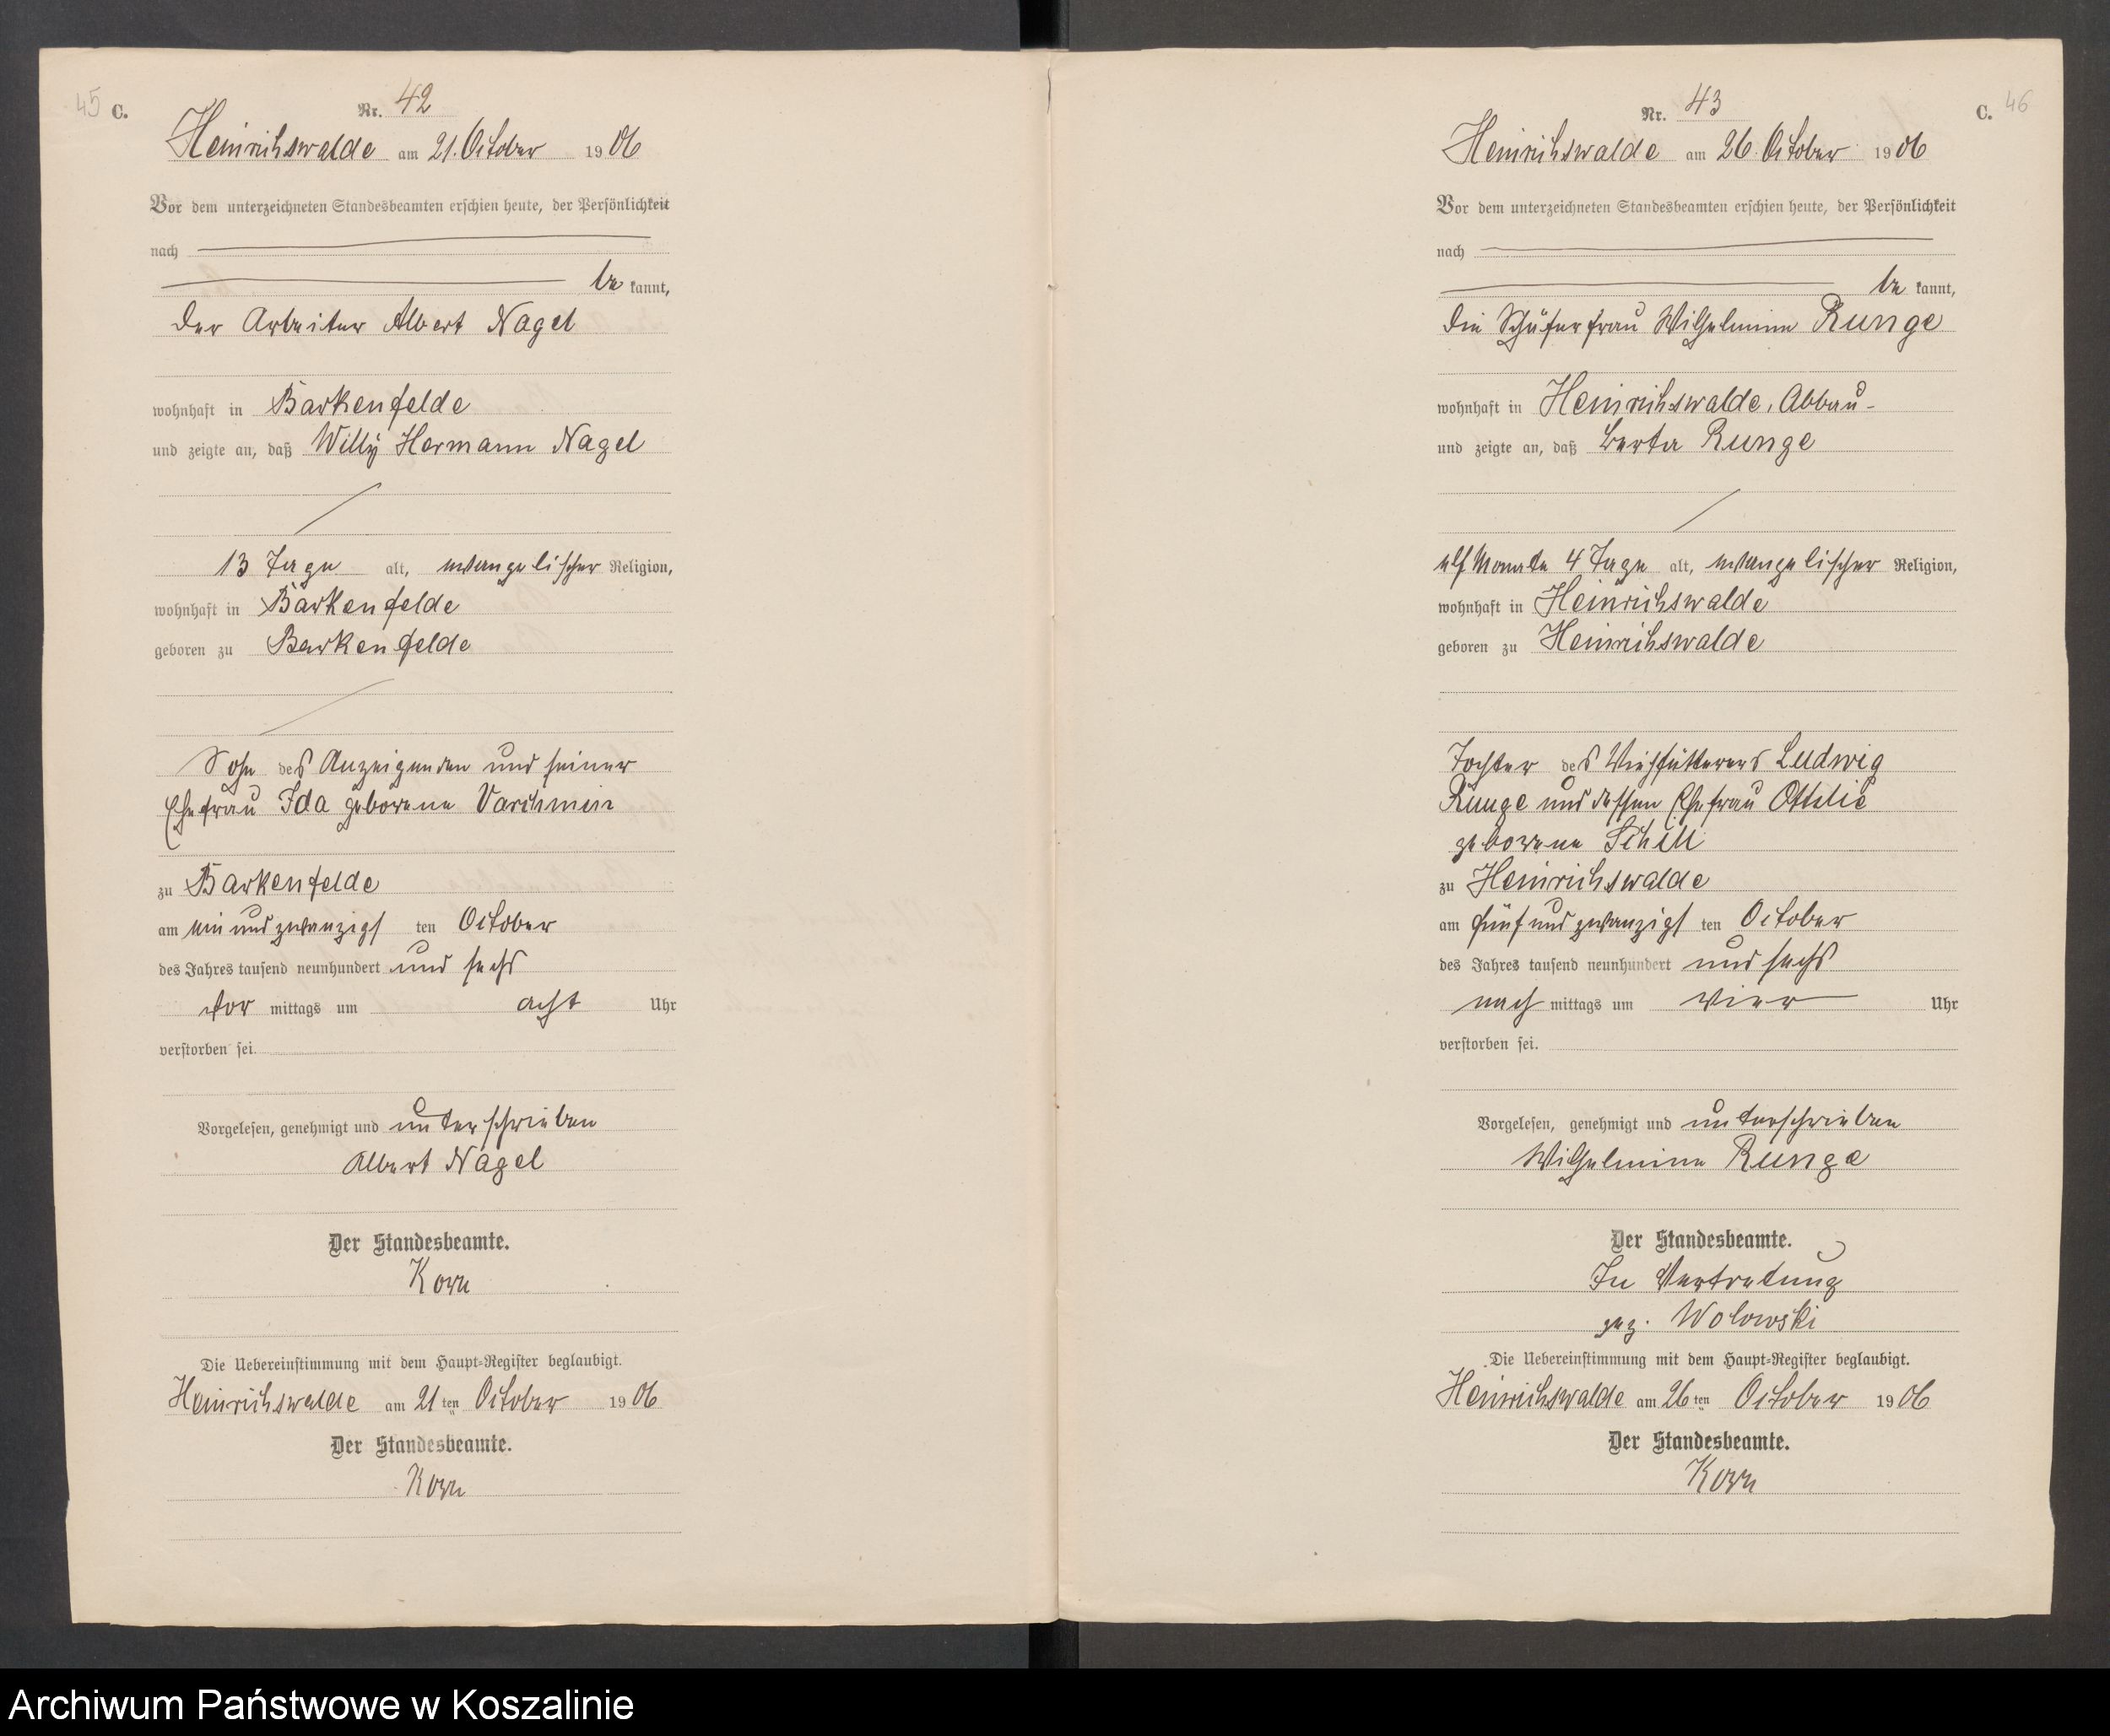 45 C.
Nr. 42
Heinrichswalde am 21. October 1906
Vor dem unterzeichneten Standesbeamten erschien heute, der Persönlichkeit
nach
be kannt,
der Arbeiter Albert Nagel
wohnhaft in Barkenfelde
und zeigte an, daß Willy Hermann Nagel
13 Tage alt, evangelischer Religion,
wohnhaft in Barkenfelde
geboren zu Barkenfelde
Sohn des Anzeigenden und seiner
Ehefrau Ida geborene Varchmin
zu Barkenfelde
am einundzwanzigs ten October
des Jahres tausend neunhundert und sechs
vor mittags um acht Uhr
verstorben sei.
Vorgelesen, genehmigt und unterschrieben
Albert Nagel
Der Standesbeamte.
Korn
Die Uebereinstimmung mit dem Haupt-Register beglaubigt.
Heinrichswalde am 21 ten October 1906
Der Standesbeamte.
Korn
C. 46
Nr. 43
Heinrichswalde am 26. October 1906
Vor dem unterzeichneten Standesbeamten erschien heute, der Persönlichkeit
nach
be kannt,
die Schäferfrau Wilhelmine Runge
wohnhaft in Heinrichswalde, Abbau-
und zeigte an, daß Berta Runge
elf Monate 4 Tage alt, evangelischer Religion,
wohnhaft in Heinrichswalde
geboren zu Heinrichswalde
Tochter des Viehfütterers Ludwig
Runge und dessen Ehefrau Ottilie
geborene Schill
zu Heinrichswalde
am fünfundzwanzigs ten October
des Jahres tausend neunhundert und sechs
nach mittags um vier Uhr
verstorben sei.
Vorgelesen, genehmigt und unterschrieben
Wilhelmine Runge
Der Standesbeamte.
In Vertretung
gez. Wolowski
Die Uebereinstimmung mit dem Haupt-Register beglaubigt.
Heinrichswalde am 26 ten October 1906
Der Standesbeamte.
Korn
Archiwum Państwowe w Koszalinie